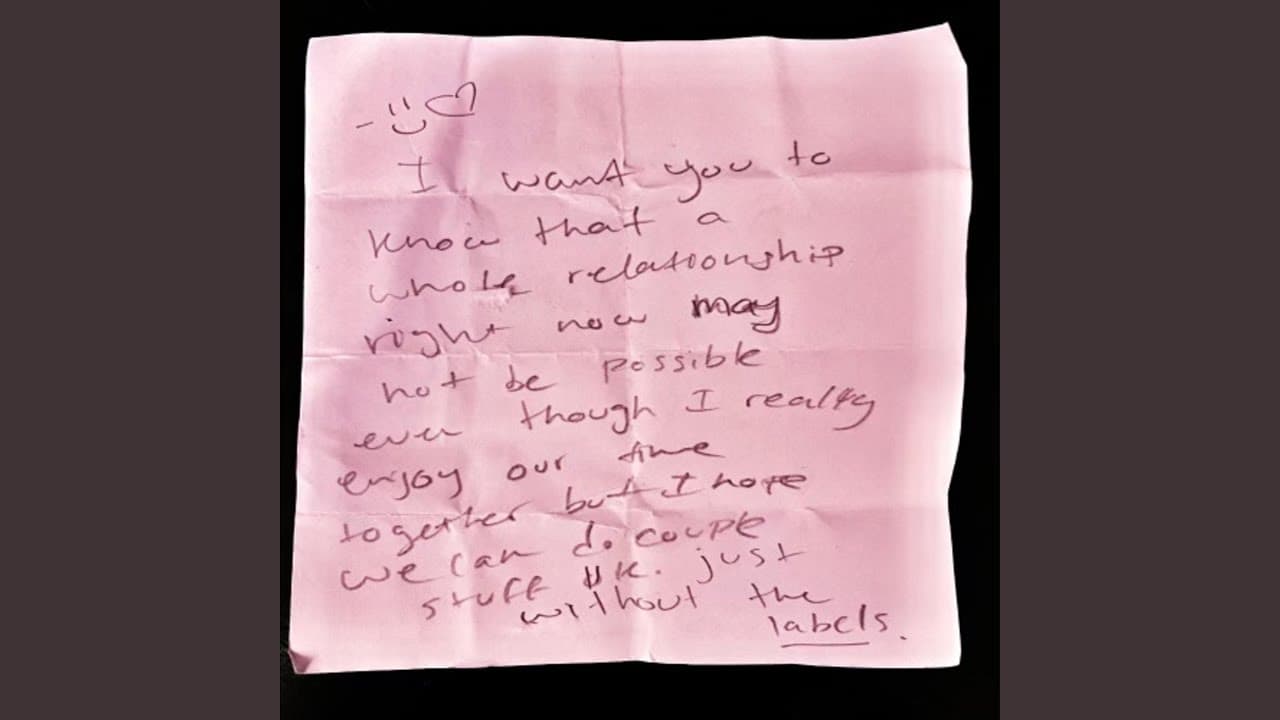 I want you to
know that a
whole relationship
right now may
not be possible
even though I really
enjoy our time
together but I hope
we can do couple
stuff  just
without the
labels.